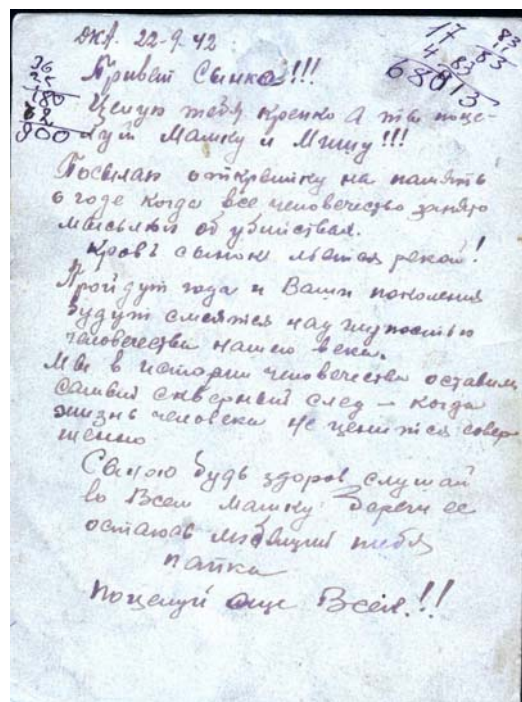 ДКА. 22-9-42
Привет Сынка!!!
Целую тебя крепко А ты поце-
луй Мамку и Мишу!!!
Посылаю открытку на память
о годе когда все человечество занято
мыслью об убийствах.
Кровь сынок льется рекой!
Пройдут года и Ваши поколения
будут смеятся над глупостью
человечества нашего века.
Мы в истории человечества оставим
самый скверный след — когда
жизнь человека не ценится совер
шенно
будь здоров слушай
во Всем мамку. Береги ее
остаюсь любящий тебя
папка
Поцелуй еще Всех!!
36
25
180
900
17
4
680
83
83
913